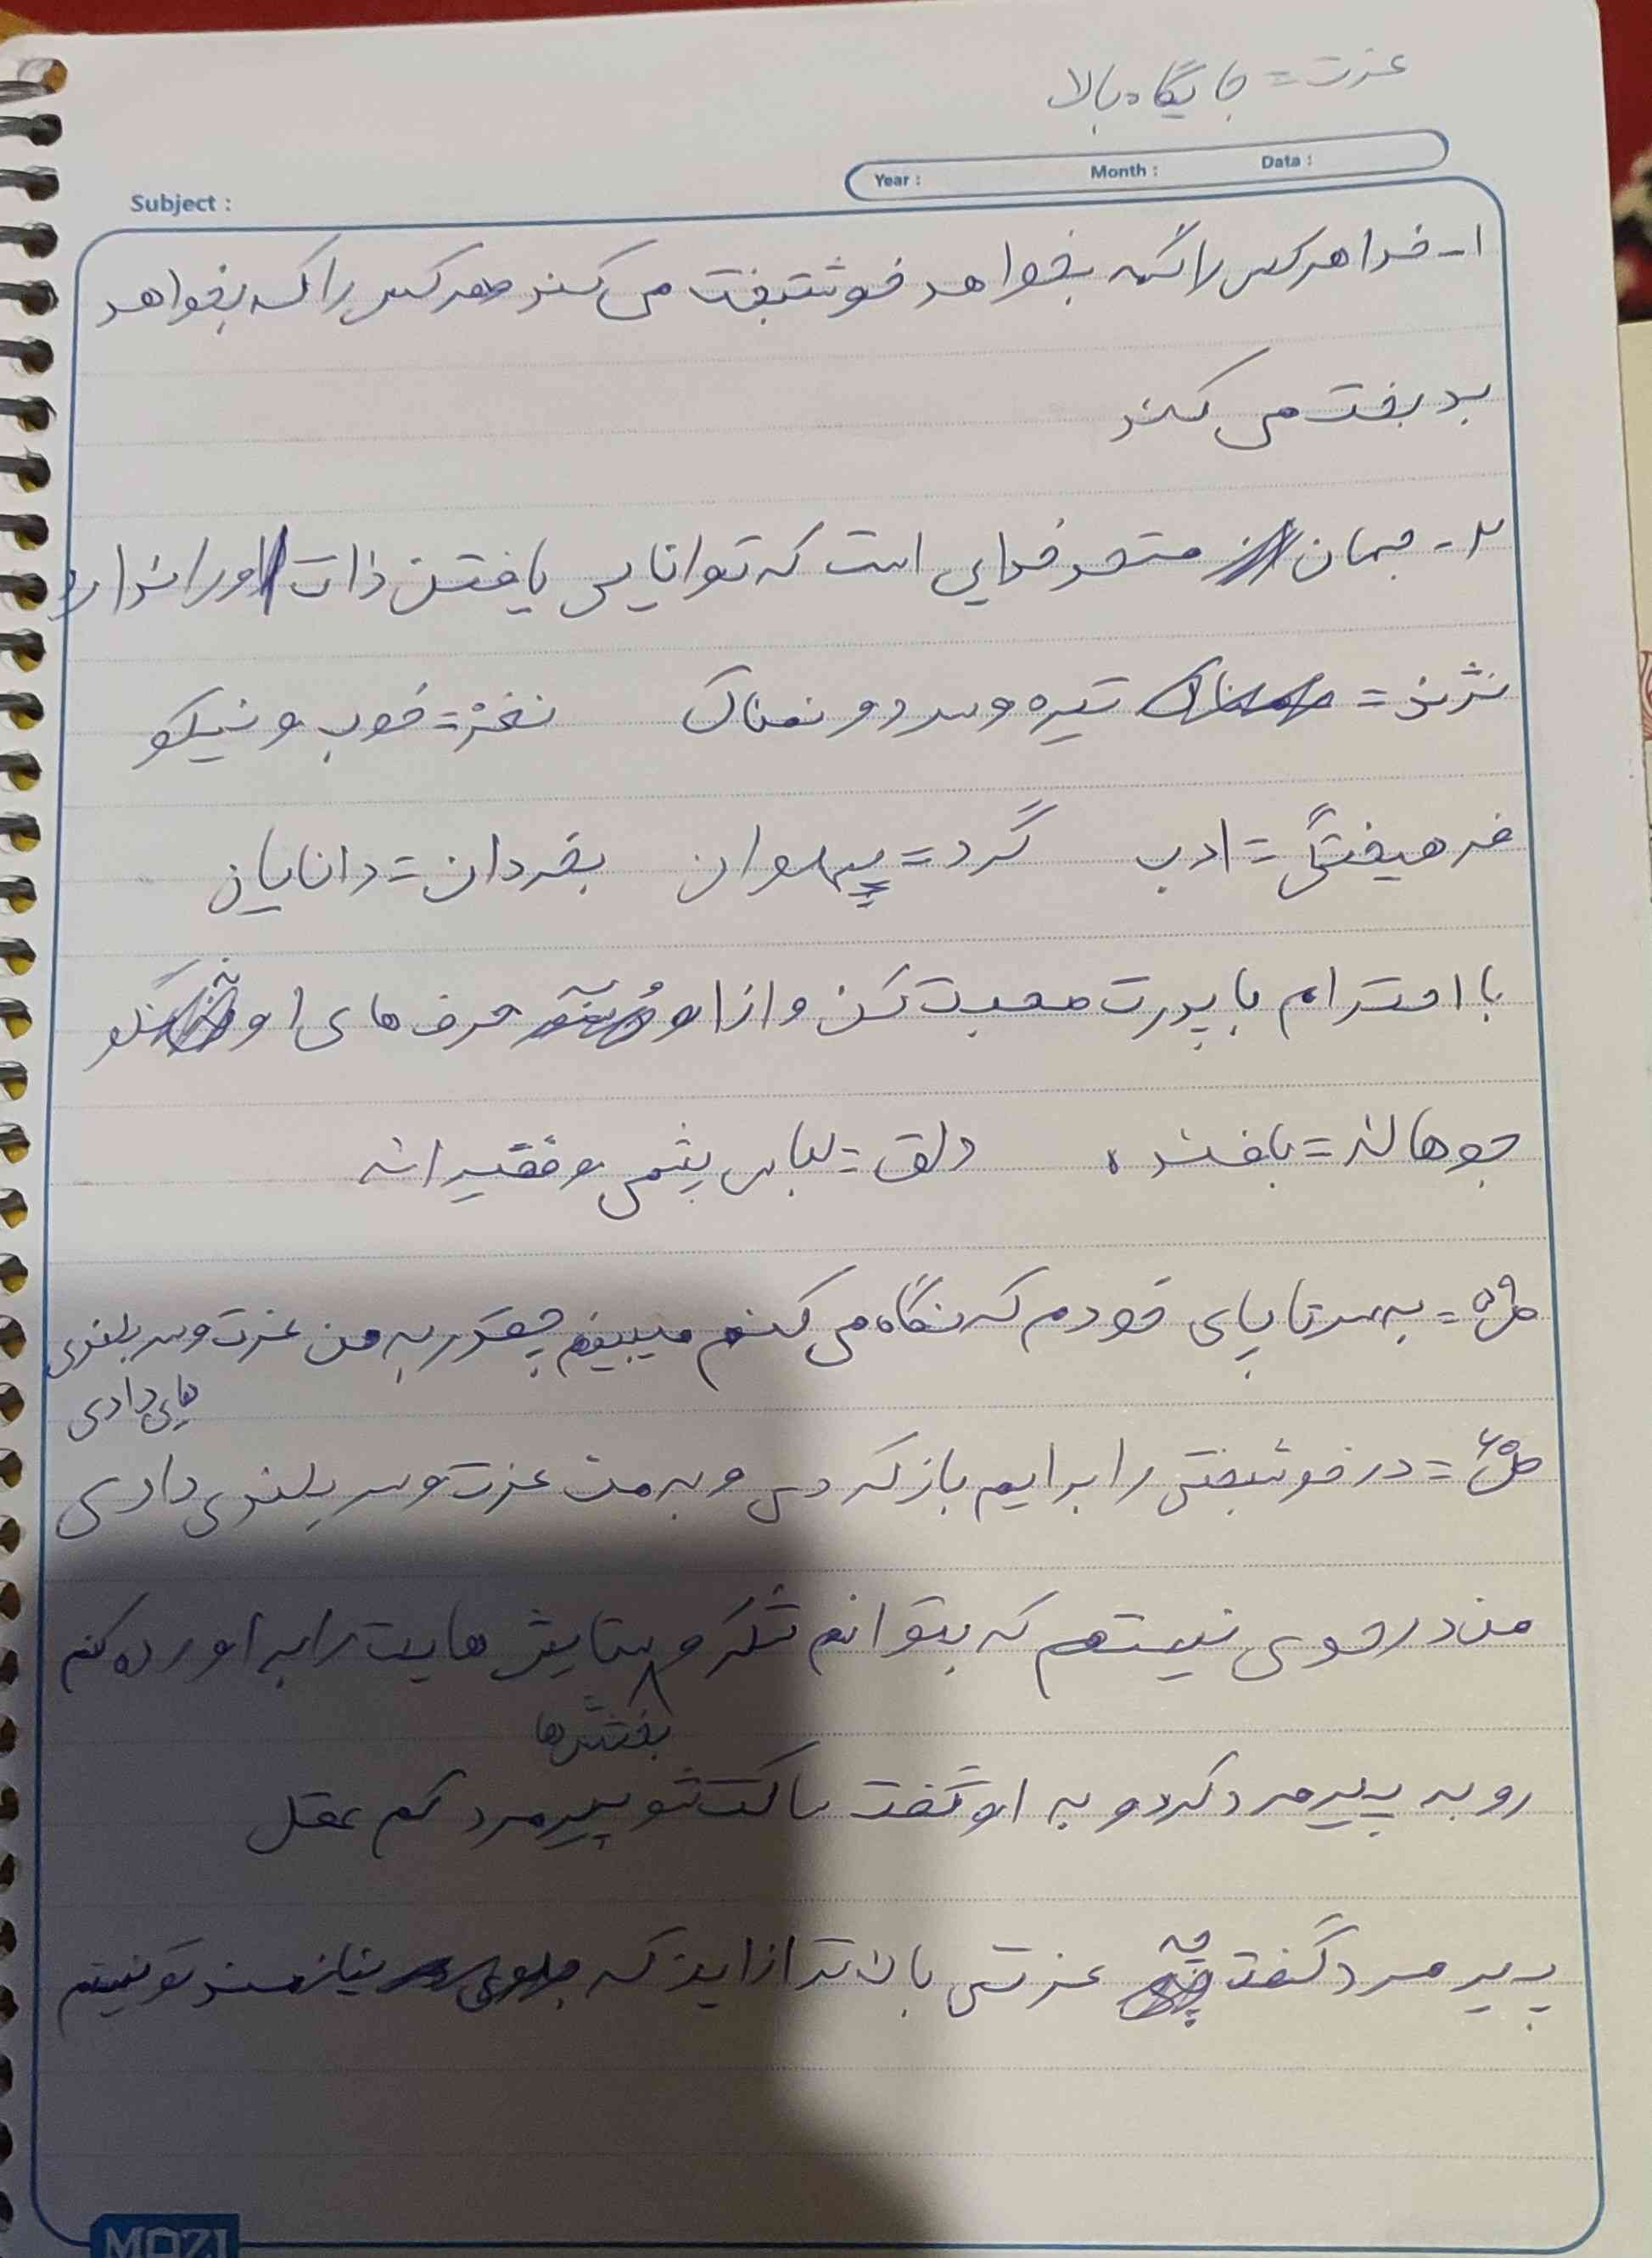 عزت = جایگاه بالا
Year : Month : Data :
Subject :
۱- خدا هر کس را که بخواهد خوشبخت می کند هر کس را که بخواهد
بدبخت می کند
۲- جهان متحد خدایی است که توانایی یافتن ذات او را ندارد
نژند = تیره و سرد و نمناک نغز = خوب و نیکو
فرهیختگی = ادب گرد = پهلوان بخردان = دانایان
با احترام با پدرت صحبت کن و از او حرف های او
جوهالنه = بافنده دلق = لباس پشمی و فقیرانه
ص۵ = به سر تا پای خودم که نگاه می کنم میبینم چقدر به من عزت و سربلندی
هایی دادی
ص۶ = در خوشبختی را برایم باز کردی و به من عزت و سربلندی دادی
من در حدی نیستم که بتوانم شکر و ستایش هایت را به اورده کنم
بخشش ها
رو به پیرمرد کرد و به او گفت ساکت شو پیرمرد کم عقل
پیرمرد گفت چه عزتی بالاتر از این که نیازمند تو نیستم
MOZI